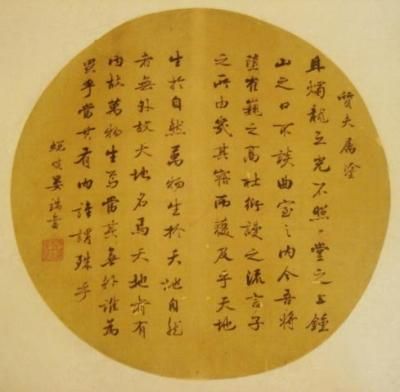 夫屬塗
且燭龍之光不照一堂之上鍾
山之口不談曲室之内今吾將
墮崔巍之高杜衍謾之流言子
之所由幾其寤而獲及乎天地
生於自然萬物生於天地自然
者無外故天地名焉天地者有
内故萬物生焉當其無外誰為
異乎當其有内誰謂殊乎
晏端書